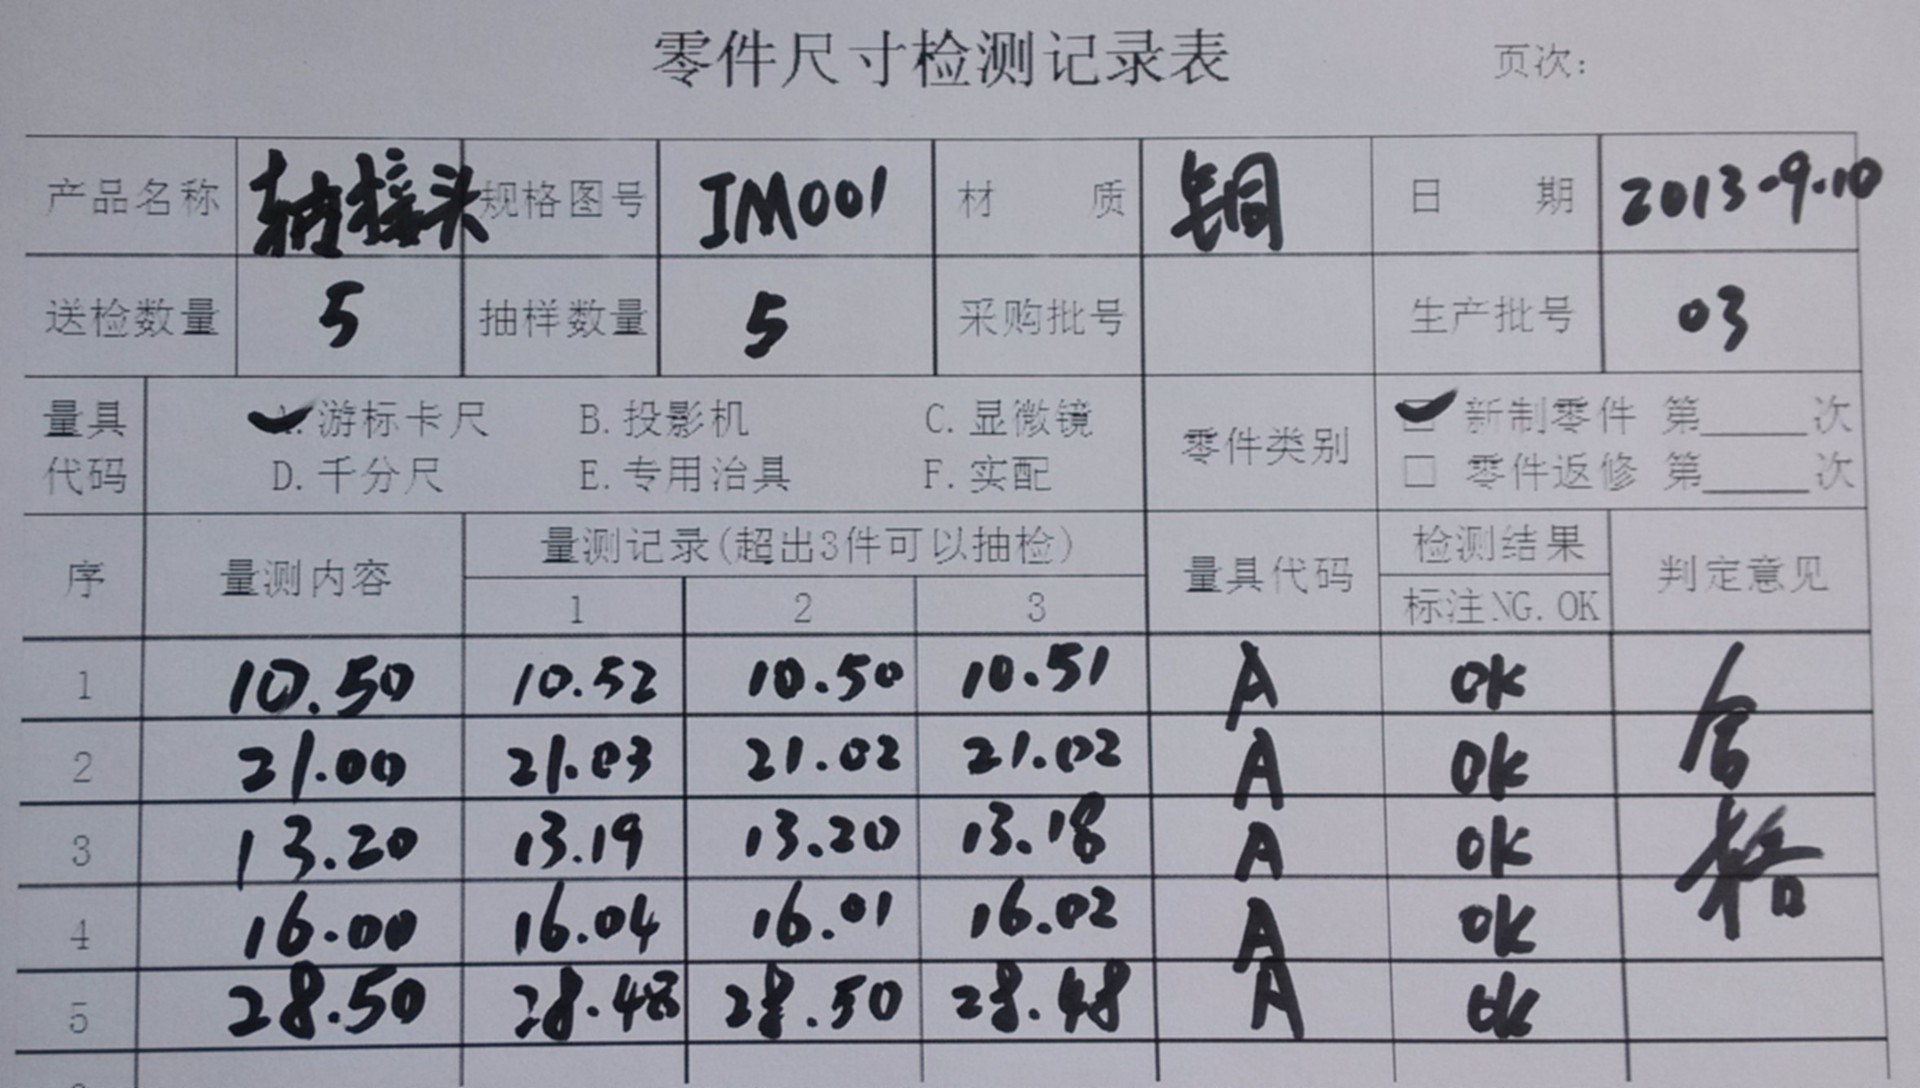 零件尺寸检测记录表 页次:
产品名称 轴接头 规格图号 IM001 材质 铜 日期 2013.9.10
送检数量 5 抽样数量 5 采购批号 生产批号 03
量具代码 A.游标卡尺 B.投影机 C.显微镜 零件类别 新制零件 第____次
D.千分尺 E.专用治具 F.实配 □ 零件返修 第____次
序 量测内容 量测记录(超出3件可以抽检) 量具代码 检测结果 判定意见
1 2 3 标注NG.OK
1 10.50 10.52 10.50 10.51 A OK 合格
2 21.00 21.03 21.02 21.02 A OK
3 13.20 13.19 13.20 13.18 A OK
4 16.00 16.04 16.01 16.02 A OK
5 28.50 28.48 28.50 28.48 A OK